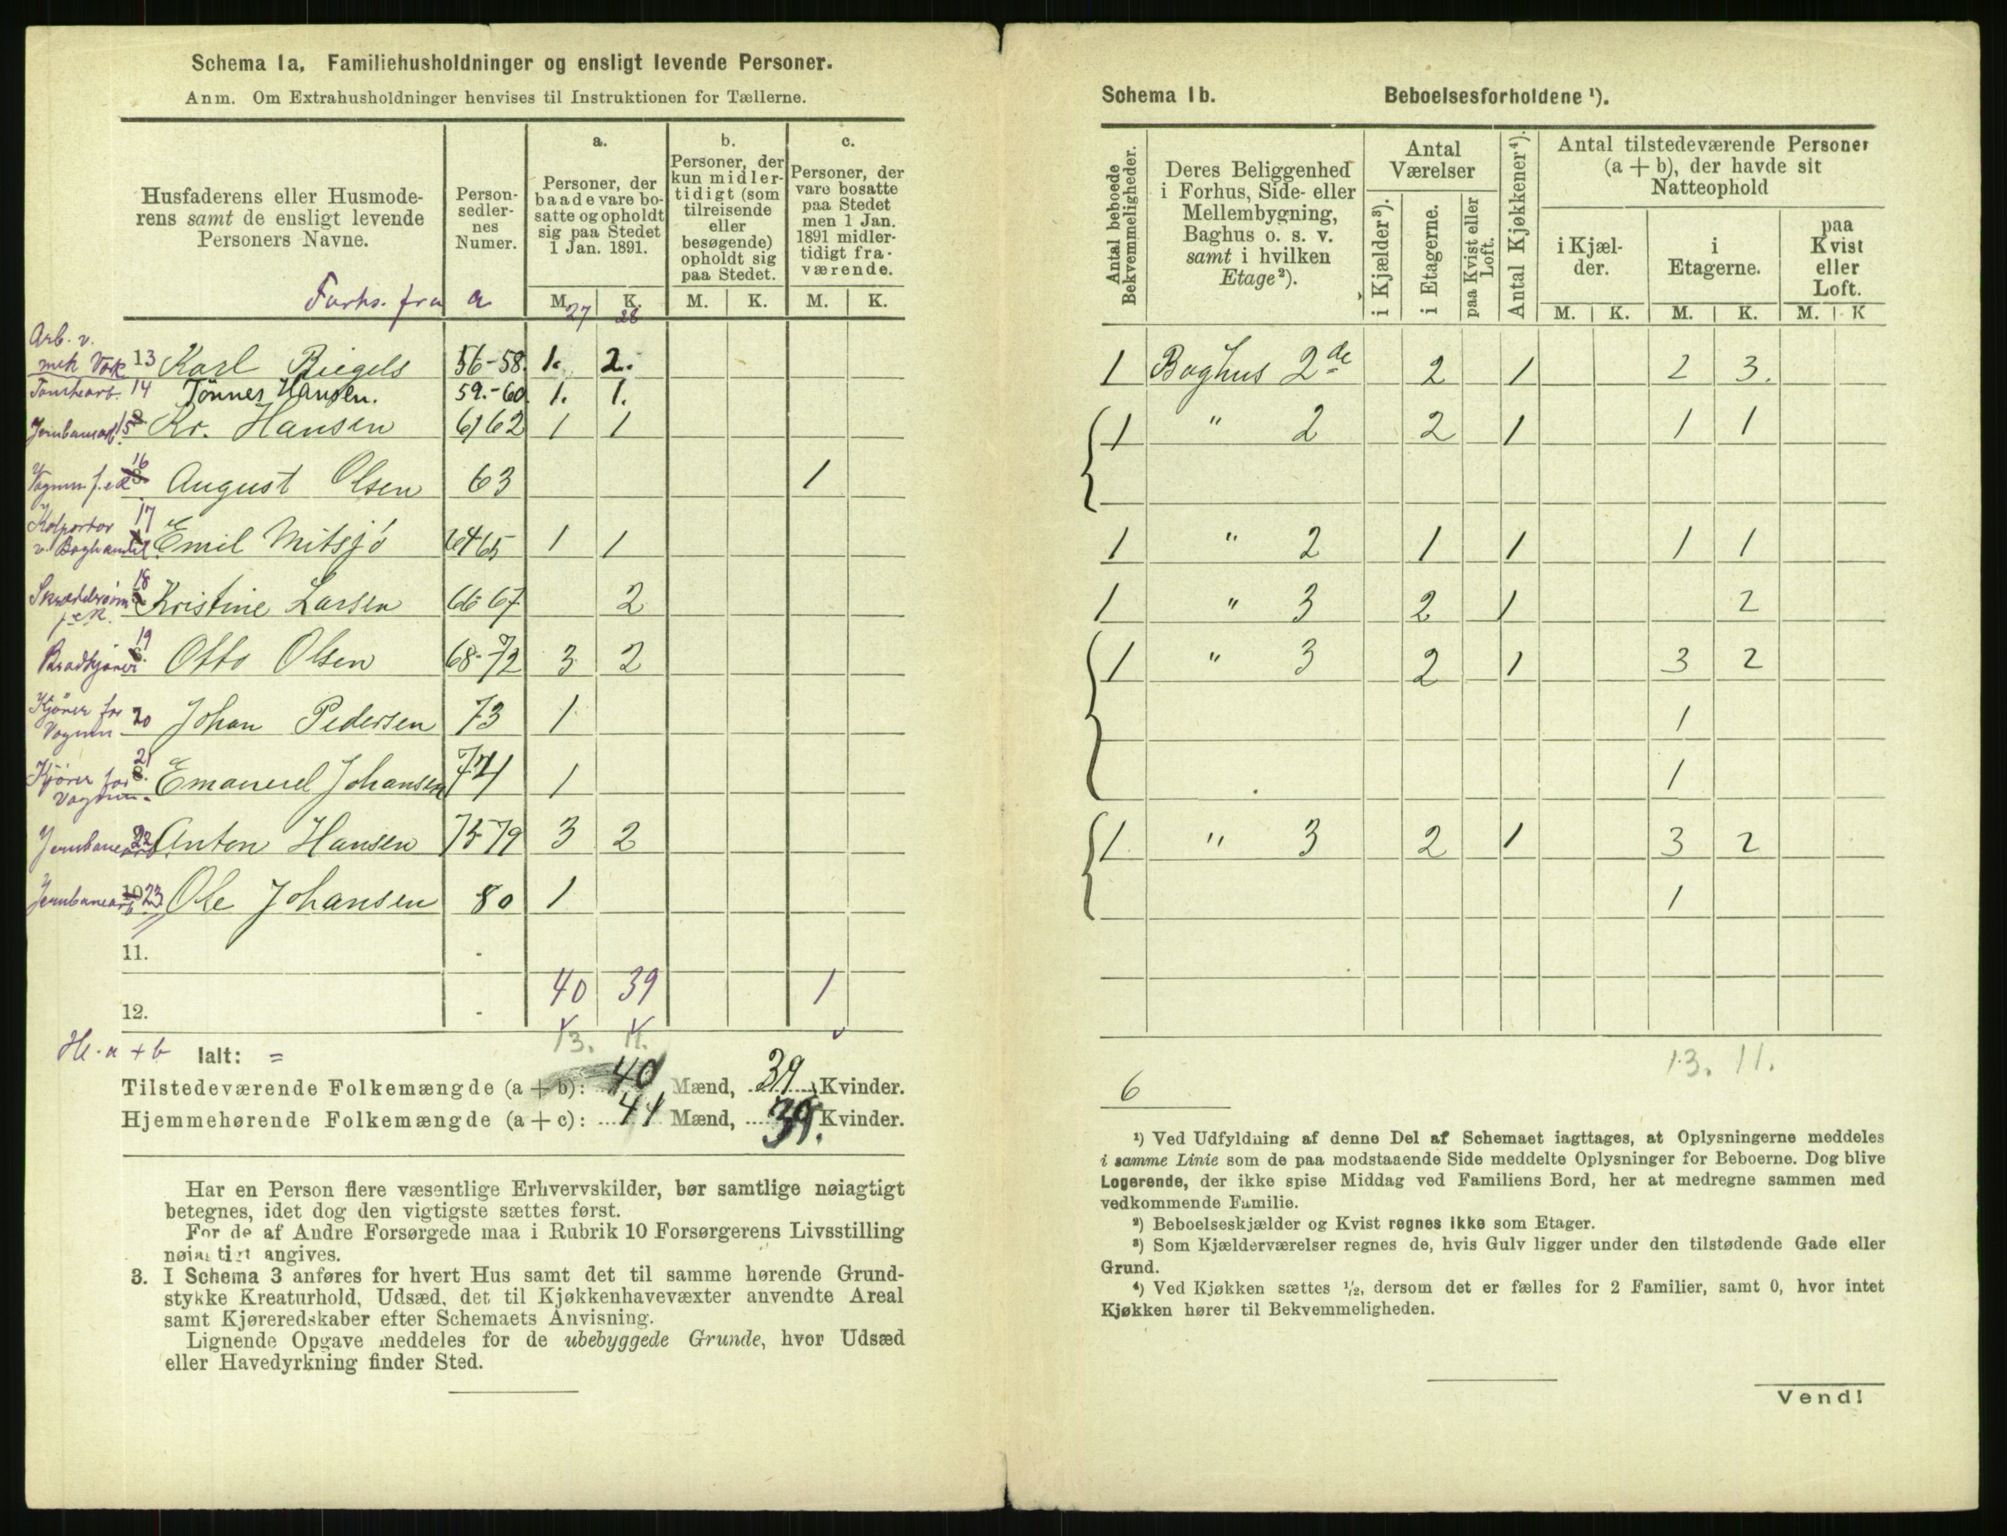 Schema 1a. Familiehusholdninger og ensligt levende Personer.
Anm. Om Extrahusholdninger henvises til Instruktionen for Tællerne.
Husfaderens eller Husmode-
rens samt de ensligt levende
Personers Navne.
Person-
sedler-
nes
Numer.
a.
Personer, der
baade vare bo-
satte og opholdt
sig paa Stedet
1 Jan. 1891.
b.
Personer, der
kun midler-
tidigt (som
tilreisende
eller
besøgende)
opholdt sig
paa Stedet.
c.
Personer, der
vare bosatte
paa Stedet
men 1 Jan.
1891 midler-
tidigt fra-
værende.
M. K. M. K. M. K.
fra a 27 28
Arb. v.
mek Værk 13 Karl Biegels 56-58. 1. 2.
14 Tönnes Hansen. 59.-60. 1. 1.
15 Kr. Hansen 6162 1 1
16 August Olsen 63 1
Kolportør 17
v. Boghandel. Emil Mitsjö 6465 1 1
18 Kristine Larsen 66 67 2
19 Otto Olsen 68-72 3 2
Kjörer for
Vognm 20 Johan Pedersen 73 1
Kjörer for 21
Vognm. Emanuel Johansen 74 1
Jernbanearb. 22 Anton Hansen 75-79 3 2
Jernbanearb 23 Ole Johansen 80 1
11.
12. 40 39 1
13. 11.
H. a + b Ialt: =
Tilstedeværende Folkemængde (a + b): 40 Mænd, 39 Kvinder.
Hjemmehørende Folkemængde (a + c): 41 Mænd, 39. Kvinder.
Har en Person flere væsentlige Erhvervskilder, bør samtlige nøiagtigt
betegnes, idet dog den vigtigste sættes først.
For de af Andre Forsørgede maa i Rubrik 10 Forsørgerens Livsstilling
nøiagtigt angives.
3. I Schema 3 anføres for hvert Hus samt det til samme hørende Grund-
stykke Kreaturhold, Udsæd, det til Kjøkkenhavevæxter anvendte Areal
samt Kjøreredskaber efter Schemaets Anvisning.
Lignende Opgave meddeles for de ubebyggede Grunde, hvor Udsæd
eller Havedyrkning finder Sted.
Schema 1b. Beboelsesforholdene ¹).
Antal beboede
Bekvemmeligheder.
Deres Beliggenhed
i Forhus, Side- eller
Mellembygning,
Baghus o. s. v.
samt i hvilken
Etage²).
Antal
Værelser
i Kjælder³).
i Etagerne.
paa Kvist eller
Loft.
Antal Kjøkkener⁴).
Antal tilstedeværende Personer
(a + b), der havde sit
Natteophold
i Kjæl-
der.
i
Etagerne.
paa
Kvist
eller
Loft.
M. K. M. K. M. K
1 Baghus 2de 2 1 2 3.
1 " 2 2 1 1 1
1 " 2 1 1 1 1
1 " 3 2 1 2
1 " 3 2 1 3 2
1
1
1 " 3 2 1 3 2
1
13. 11.
6
¹) Ved Udfyldning af denne Del af Schemaet iagttages, at Oplysningerne meddeles
i samme Linie som de paa modstaaende Side meddelte Oplysninger for Beboerne. Dog blive
Logerende, der ikke spise Middag ved Familiens Bord, her at medregne sammen med
vedkommende Familie.
²) Beboelseskjælder og Kvist regnes ikke som Etager.
³) Som Kjælderværelser regnes de, hvis Gulv ligger under den tilstødende Gade eller
Grund.
⁴) Ved Kjøkken sættes ¹/₂, dersom det er fælles for 2 Familier, samt 0, hvor intet
Kjøkken hører til Bekvemmeligheden.
Vend!